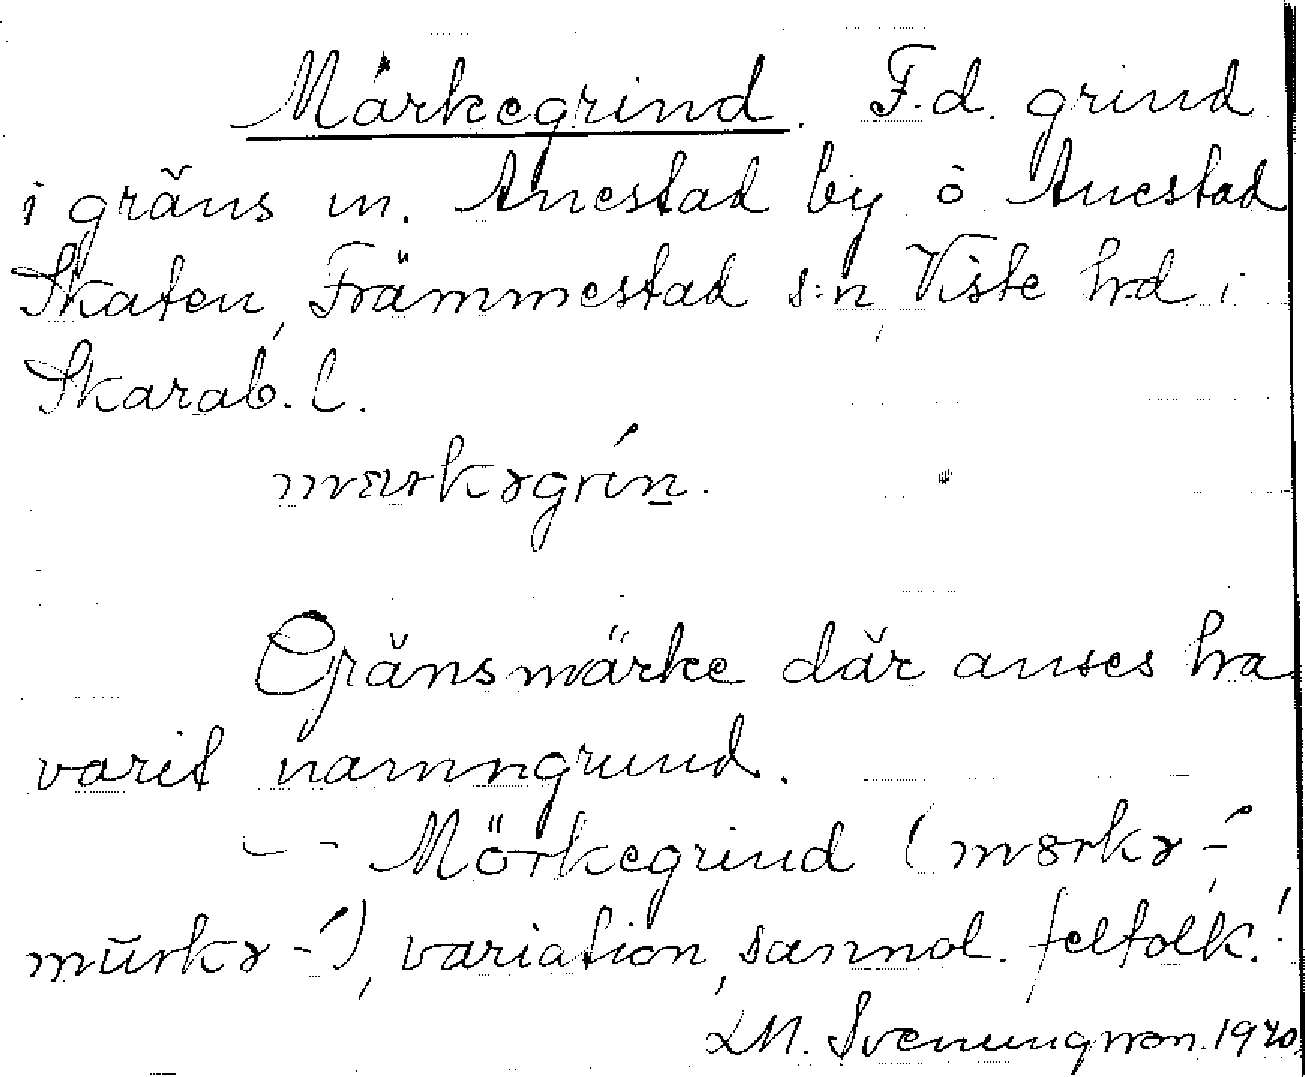 Märkegrind. F.d. grind
i gräns m. Anestad by o Anestad
Skaten, Främmestad s:n, Viste hd i
Skarab. l.
Gränsmärke där anses ha
varit namngrund.
-- Mörkegrind (
variation, sannol. feltolk.!
LM. Svenungsson. 1970